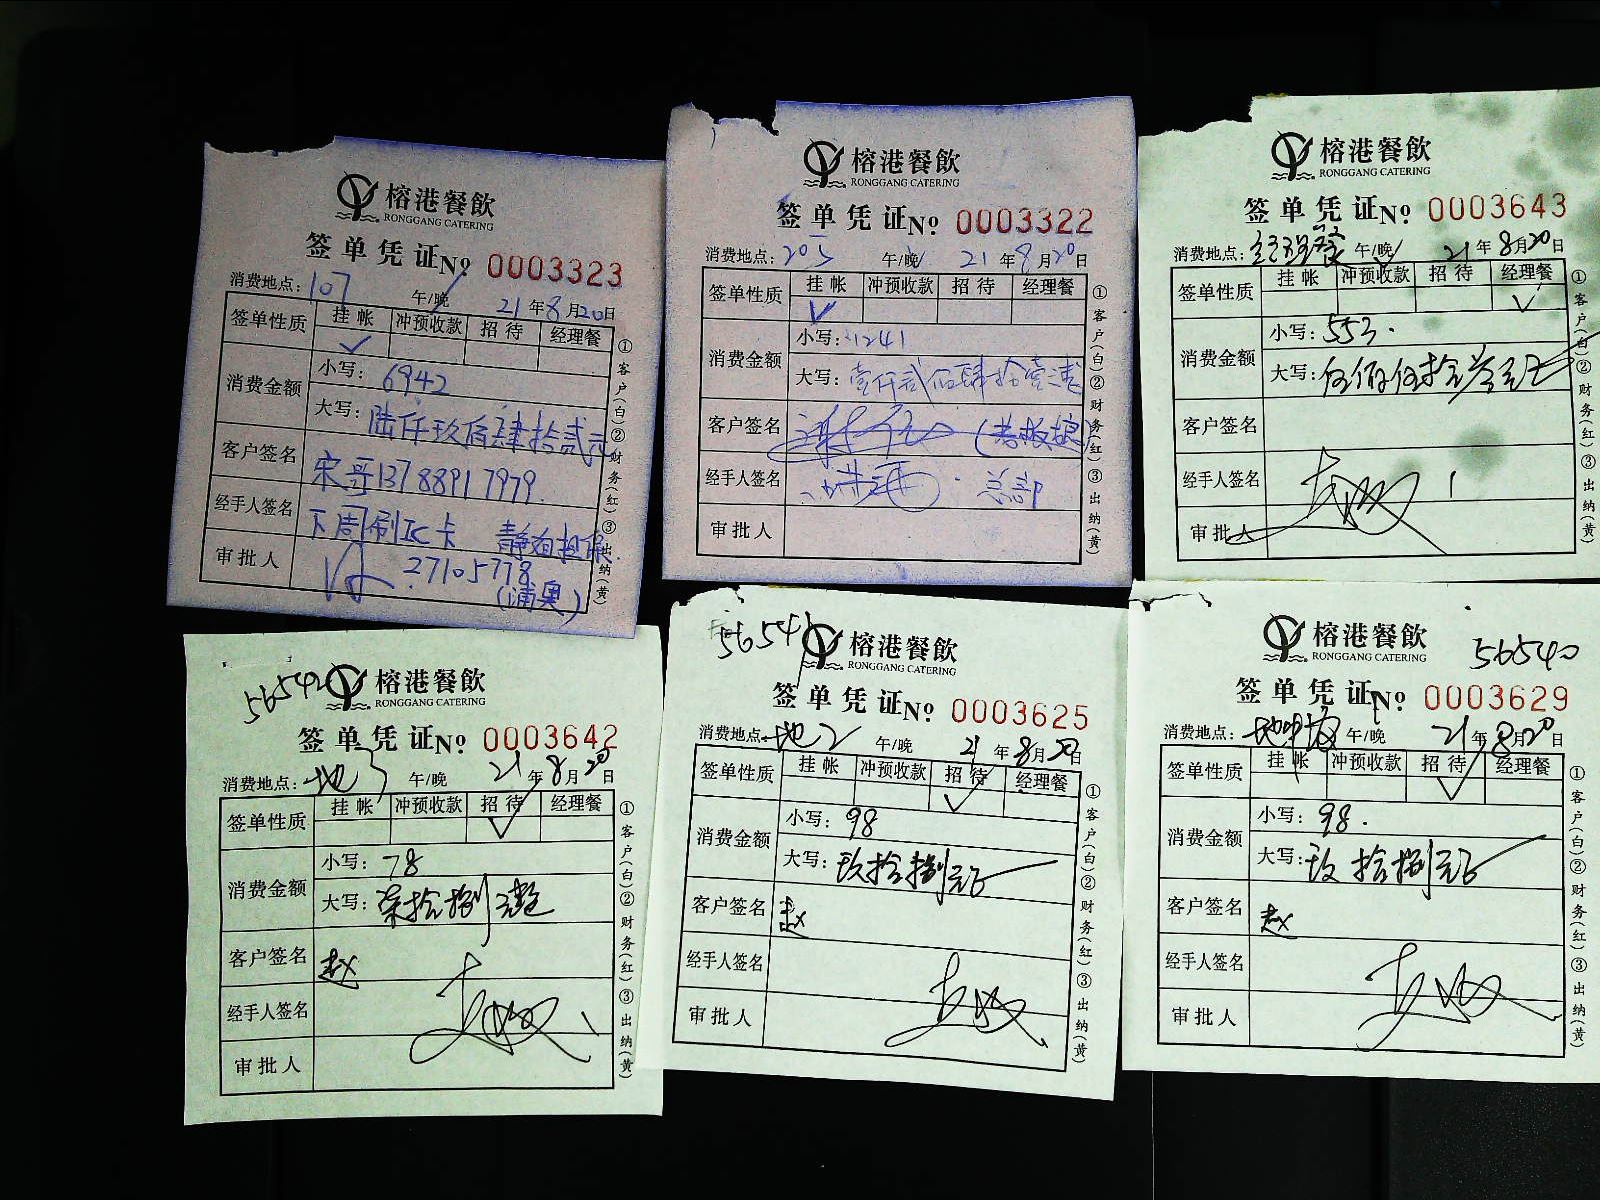 榕港餐飲
RONGGANG CATERING
签单凭证№ 0003323
消费地点：107 午/晚 21年8月20日
签单性质 挂帐 冲预收款 招待 经理餐
✓
消费金额 小写：6942
大写：陆仟玖佰肆拾贰元
客户签名 宋哥13788917979
经手人签名 下周刷IC卡 静姐担保
审批人 27105778
(浦奥)
①客户(白)②财务(红)③出纳(黄)
榕港餐飲
RONGGANG CATERING
签单凭证№ 0003322
消费地点：205 午/晚 21年8月20日
签单性质 挂帐 冲预收款 招待 经理餐
✓
消费金额 小写：1241
大写：壹仟贰佰肆拾壹元
客户签名
经手人签名 总部
审批人
①客户(白)②财务(红)③出纳(黄)
榕港餐飲
RONGGANG CATERING
签单凭证№ 0003643
消费地点：经理餐 午/晚 21年8月20日
签单性质 挂帐 冲预收款 招待 经理餐
✓
消费金额 小写：553.
大写：伍佰伍拾叁元
客户签名
经手人签名
审批人
①客户(白)②财务(红)③出纳(黄)
56542
榕港餐飲
RONGGANG CATERING
签单凭证№ 0003642
消费地点：地3 午/晚 21年8月20日
签单性质 挂帐 冲预收款 招待 经理餐
✓
消费金额 小写：78
大写：柒拾捌元
客户签名 赵
经手人签名
审批人
①客户(白)②财务(红)③出纳(黄)
56541
榕港餐飲
RONGGANG CATERING
签单凭证№ 0003625
消费地点：地2 午/晚 21年8月20日
签单性质 挂帐 冲预收款 招待 经理餐
✓
消费金额 小写：98
大写：玖拾捌元
客户签名 赵
经手人签名
审批人
①客户(白)②财务(红)③出纳(黄)
56540
榕港餐飲
RONGGANG CATERING
签单凭证№ 0003629
消费地点： 午/晚 21年8月20日
签单性质 挂帐 冲预收款 招待 经理餐
✓
消费金额 小写：98.
大写：玖拾捌元
客户签名 赵
经手人签名
审批人
①客户(白)②财务(红)③出纳(黄)